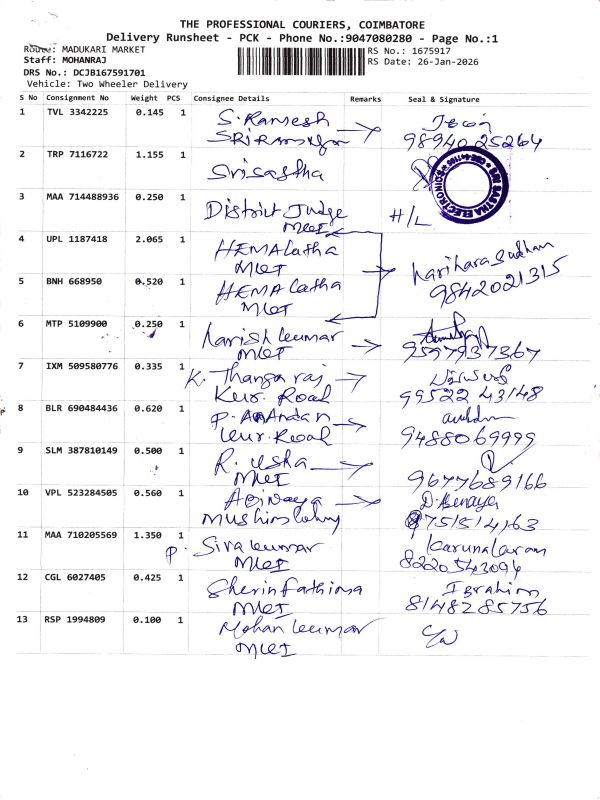 THE PROFESSIONAL COURIERS, COIMBATORE
Delivery Runsheet - PCK - Phone No.:9047080280 - Page No.:1
Route: MADUKARI MARKET
RS No.: 1675917
Staff: MOHANRAJ
RS Date: 26-Jan-2026
DRS No.: DCJB167591701
Vehicle: Two Wheeler Delivery
S No Consignment No Weight PCS Consignee Details Remarks Seal & Signature
1 TVL 3342225 0.145 1 S. Ramesh
98940 25264
2 TRP 7116722 1.155 1 Srisastha
3 MAA 714488936 0.250 1 District Judge H/L
4 UPL 1187418 2.065 1 HEMA Latha
Harihara Sudhan
9842021315
5 BNH 668950 0.520 1 HEMA Latha
6 MTP 5109900 0.250 1 Harish kumar
9597937367
7 IXM 509580776 0.335 1 K. Thanga raj
Kur. Road 99522 43148
8 BLR 690484436 0.620 1
Kur. Road 9488069999
9 SLM 387810149 0.500 1 R. Usha
9677689166
10 VPL 523284505 0.560 1
11 MAA 710205569 1.350 1 P. Siva kumar Karunakaram
8220543094
12 CGL 6027405 0.425 1 Sherin fathima Ibrahim
8148285756
13 RSP 1994809 0.100 1 Mohan kumar